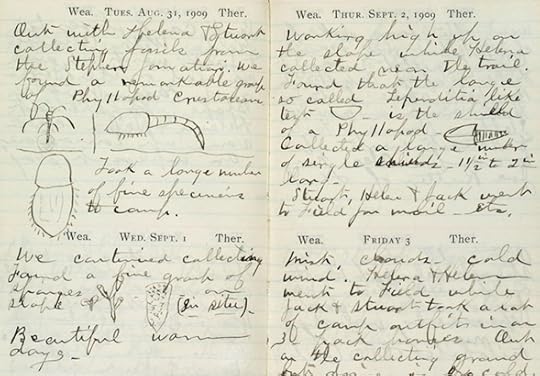 Wea. TUES. AUG. 31, 1909 Ther.
Out with Helena & Stuart
collecting fossils from
the Stephen formation. We
found a remarkable group
of Phyllopod Crustaceans
Took a large number
of fine specimens
to camp.
Wea. WED. SEPT. 1 Ther.
We continued collecting
Found a fine group of
sponges on
slope (in situ).
Beautiful warm
days.
Wea. THUR. SEPT. 2, 1909 Ther.
Working high up on
the slope while Helena
collected near the trail.
Found that the large
so called Leperditia like
test is the shield
of a Phyllopod
Collected a large number
of single shields 1 1/2 to 2 in
long.
Stuart, Helen & Jack went
to Field for mail etc.
Wea. FRIDAY 3 Ther.
Mist, clouds - cold
wind. Helena & Helen
went to Field while
Jack & Stuart took a lot
of camp outfit in on
3 pack horses. Out
on the collecting ground
cold.